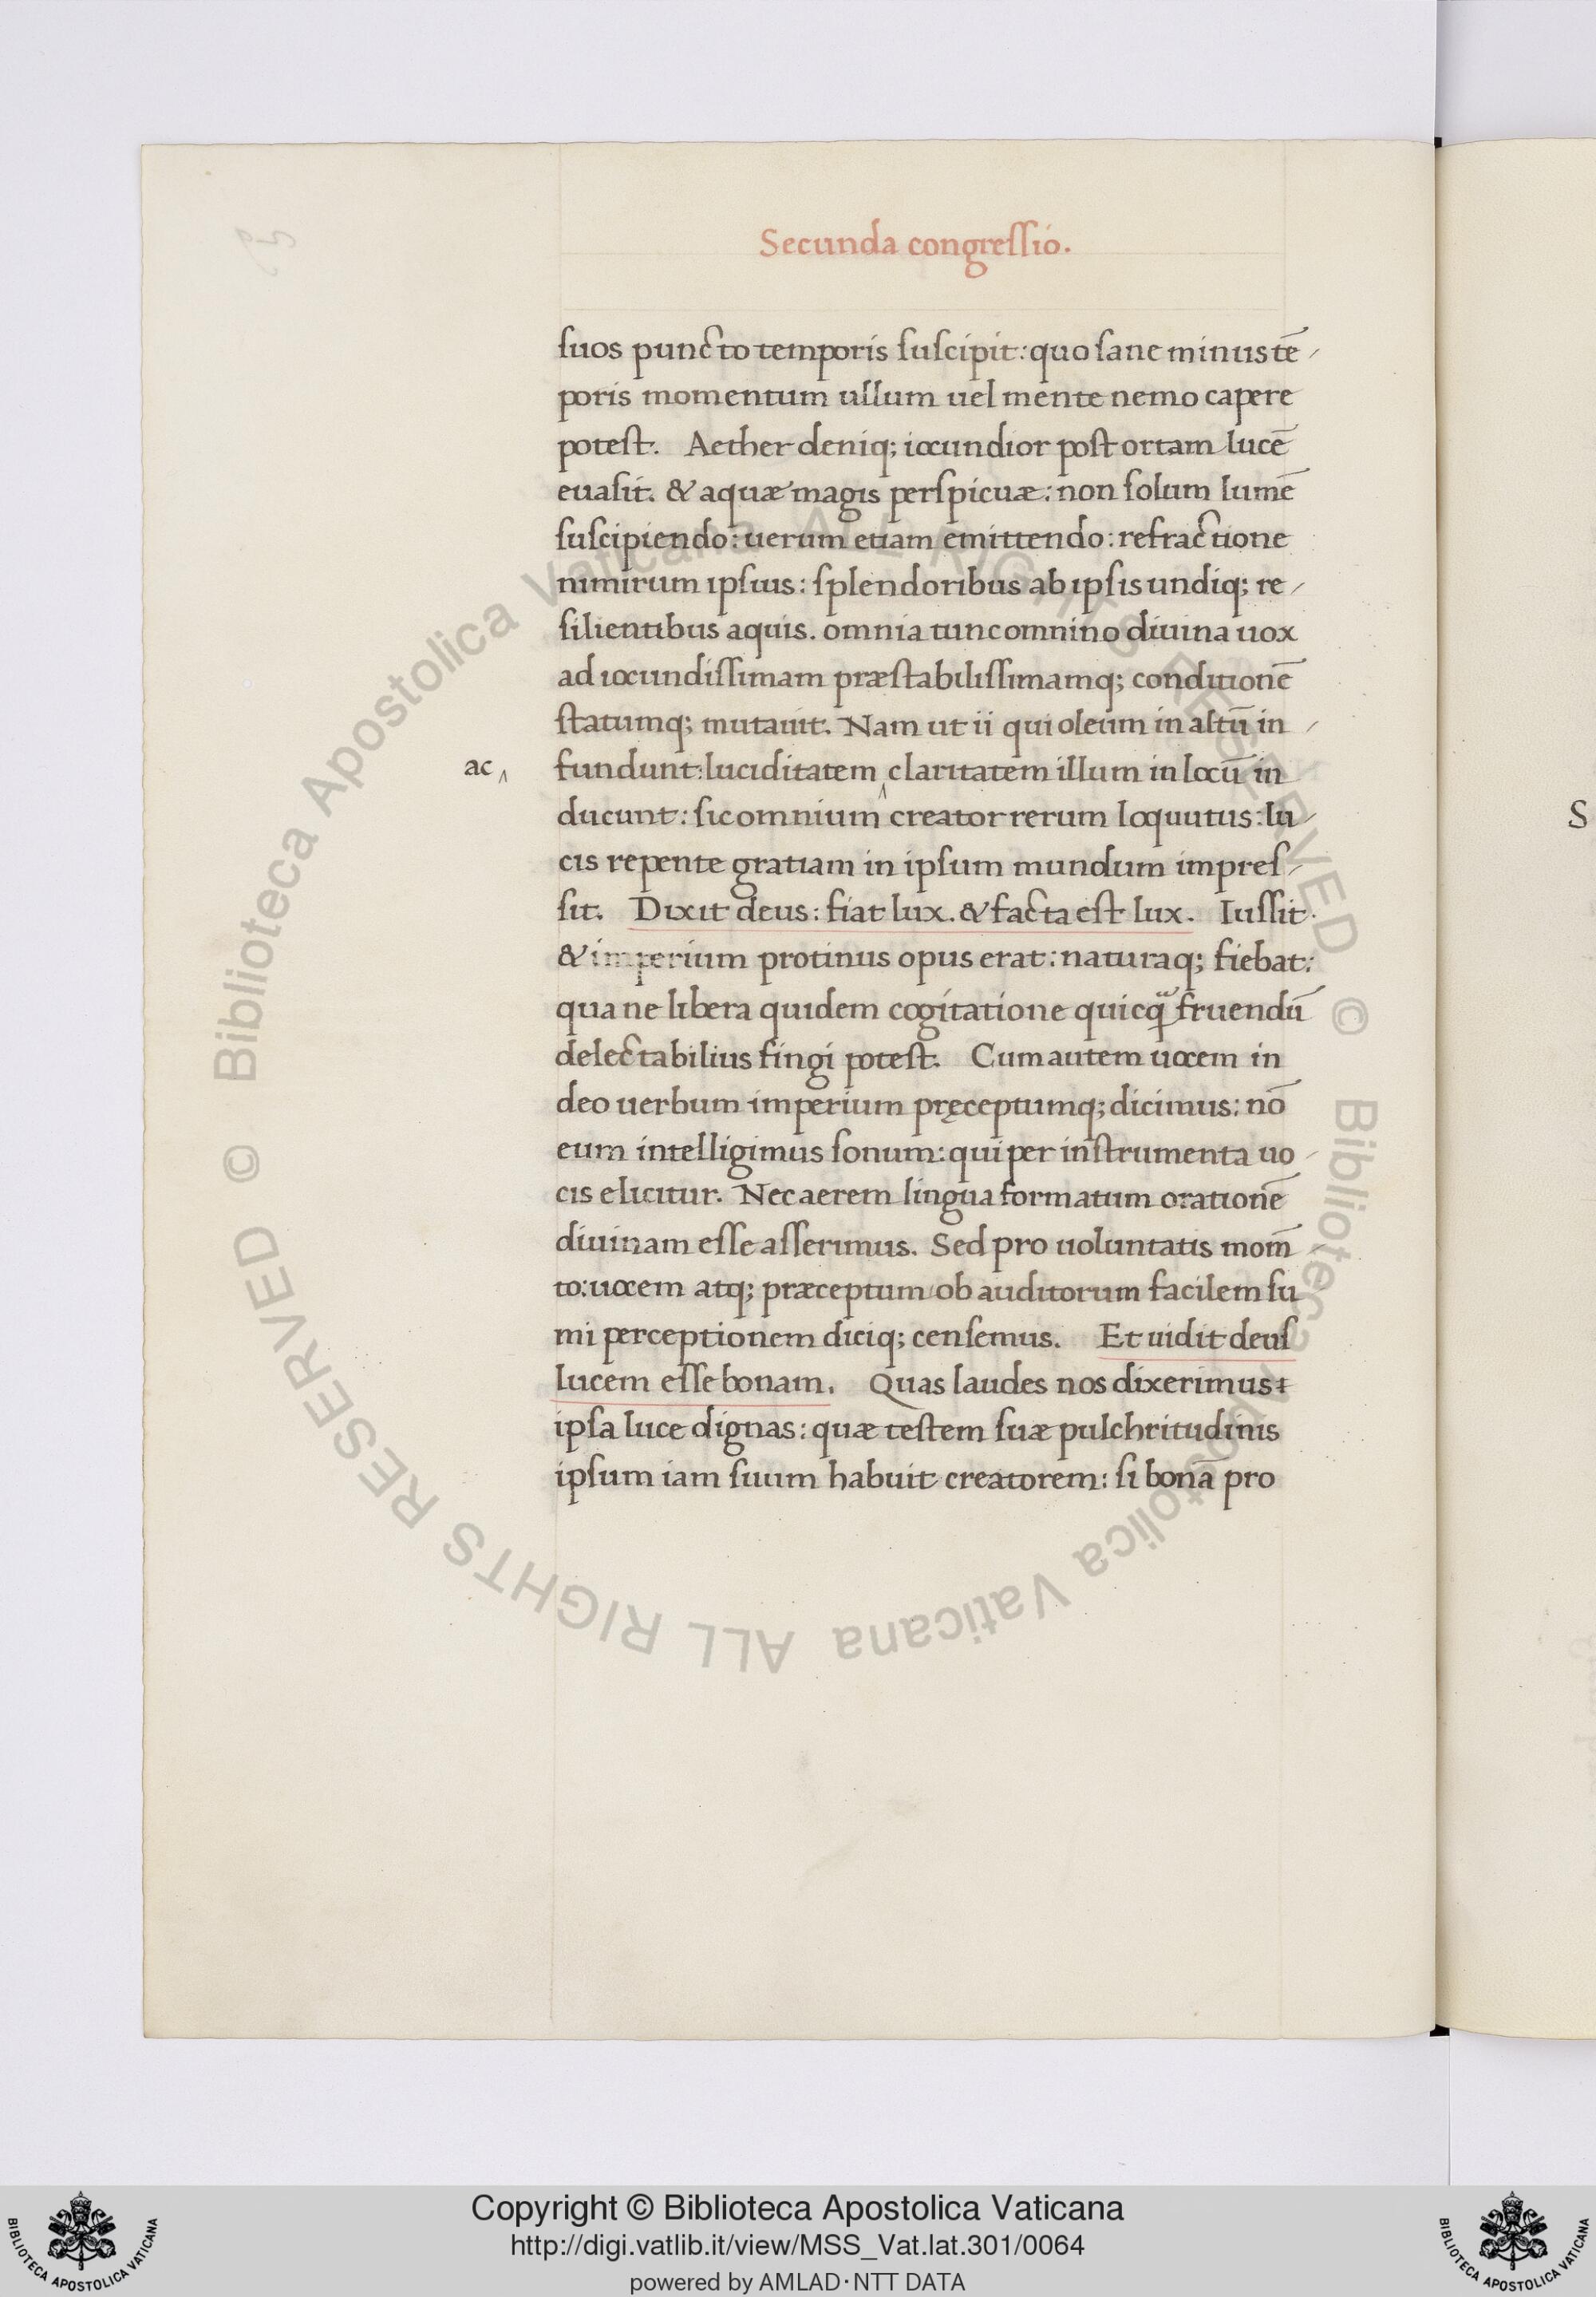 Secunda congreſſio.
ſuos puncto temporis ſuſcipit: quo ſane minus tē/
poris momentum ullum uel mente nemo capere
poteſt. Aether deniq; iocundior poſt ortam lucē
evaſit. & aquæ magis perſpicuæ: non ſolum lumē
ſuſcipiendo: uerum etiam emittendo: refractione
nimirum ipſius: ſplendoribus ab ipſis undiq; re/
ſilientibus aquis. omnia tunc omnino diuina uox
ad iocundiſſimam præſtabiliſſimamq; conditionē
ſtatumq; mutauit. Nam ut ii qui oleum in altū in/
ac‸ fundunt: luciditatem ‸ claritatem illum in locū in
ducunt: ſic omnium creator rerum loquutus: lu/
cis repente gratiam in ipſum mundum impreſ/
ſit. Dixit deus: fiat lux. & facta eſt lux. Iuſſit.
& imperium protinus opus erat: naturaq; fiebat:
qua ne libera quidem cogitatione quicq̃ fruendū
delectabilius fingi poteſt. Cum autem uocem in
deo uerbum imperium pręceptumq; dicimus: nō
eum intelligimus ſonum: qui per inſtrumenta uo/
cis elicitur. Nec aerem lingua formatum orationē
diuinam eſſe aſſerimus. Sed pro uoluntatis mom̄
to: uocem atq; præceptum ob auditorum facilem ſu
mi perceptionem diciq; cenſemus. Et uidit deuſ
lucem eſſe bonam. Quas laudes nos dixerimus:
ipſa luce dignas: quæ teſtem ſuæ pulchritudinis
ipſum iam ſuum habuit creatorem: ſi bonā pro
S
Biblioteca Apostolica Vaticana ALL RIGHTS RESERVED © Biblioteca Apostolica Vaticana ALL RIGHTS RESERVED ©
Copyright © Biblioteca Apostolica Vaticana
http://digi.vatlib.it/view/MSS_Vat.lat.301/0064
powered by AMLAD·NTT DATA
BIBLIOTECA APOSTOLICA VATICANA
BIBLIOTECA APOSTOLICA VATICANA